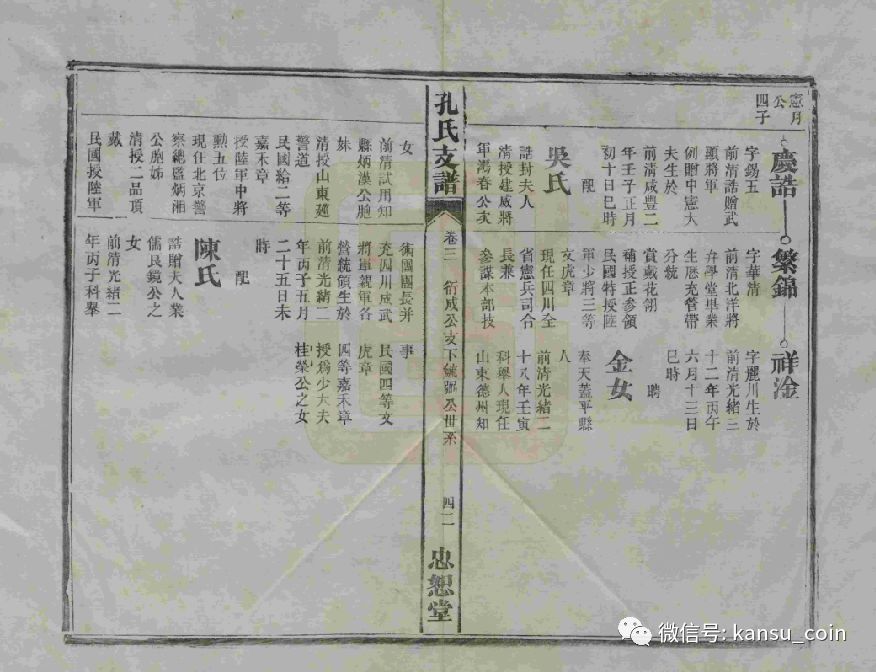 憲月
公
四子
慶誥
字錫玉
前清誥贈武
顯將軍
例贈中憲大
夫生於
前清咸豐二
年壬子正月
初十日巳時
配
吳氏
誥封夫人
清授建威將
年鴻春公次
繁錦
字華清
前清北洋將
弁學堂畢業
生歷充管帶
分統
賞戴花翎
補授正參領
民國特授陸
軍少將三等
文虎章
現任四川全
省憲兵司令
長兼
參謀本部技
祥淦
字麗川生於
前清光緒三
十二年丙午
六月十三日
巳時
聘
金女
奉天蓋平縣
人
前清光緒二
十八年壬寅
科舉人現任
山東德州知
孔氏支譜
卷三
衍咸公支下毓
公世系
四二
忠恕堂
女
前清試用知
縣炳漢公胞
妹
清授山東
警道
民國給二等
嘉禾章
授陸軍中將
勳五位
現任北京警
察總監炳湘
公胞姊
清授二品頂
戴
民國授陸軍
衛團團長并
充四川成武
將軍親軍各
營統領生於
前清光緒二
年丙子五月
二十五日未
時
配
陳氏
誥贈夫人業
儒民鏡公之
女
前清光緒二
年丙子科舉
事
民國四等文
虎章
四等嘉禾章
授爲少大夫
桂榮公之女
微信号: kansu_coin